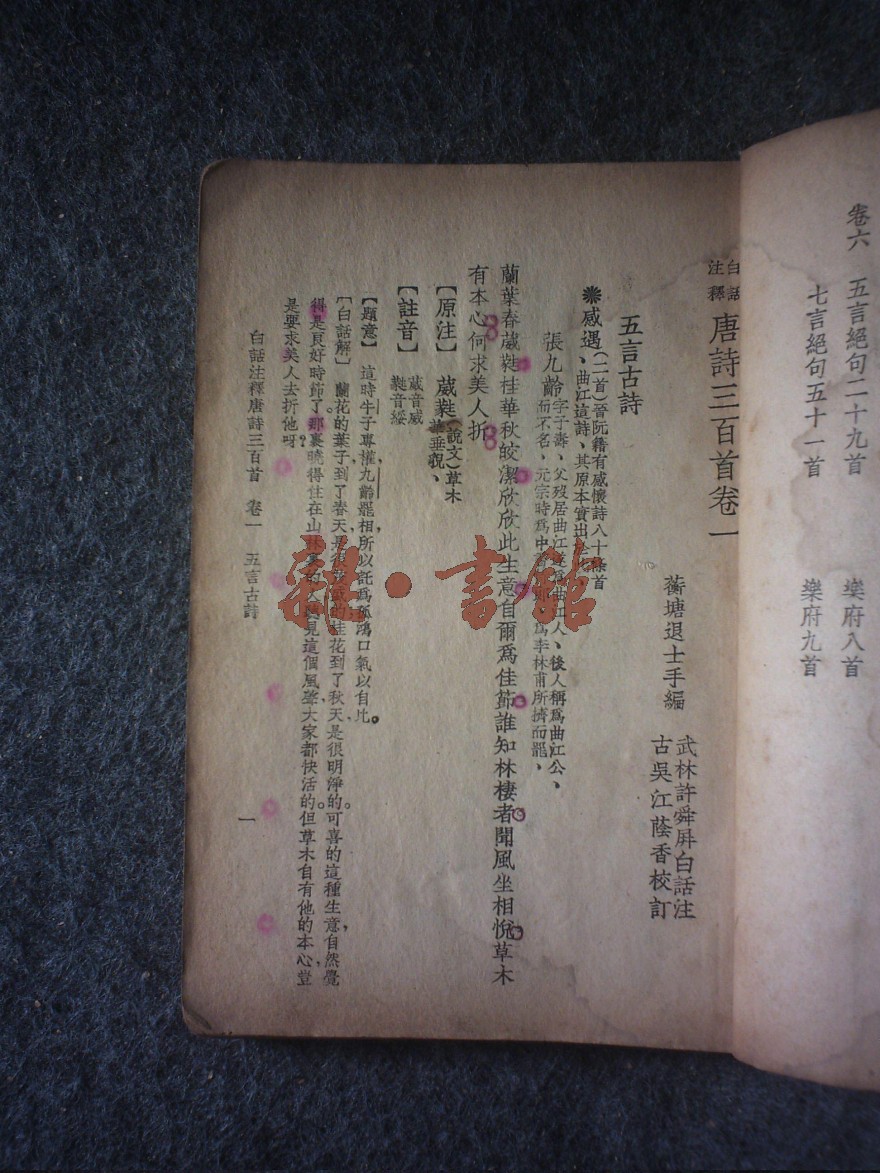 卷六　五言絕句二十九首　樂府八首
七言絕句五十一首　樂府九首
白話注釋 唐詩三百首卷一
蘅塘退士手編
武林許舜屏白話注
古吳江蔭香校訂
五言古詩
感遇、(二首)晉阮籍有感懷詩八十餘首
曲江這詩、其原本實出
張九齡 字子壽、父歿居曲江遂爲曲江人、後人稱爲曲江公、
而不名、元宗時爲中書 爲李林甫所擠而罷、
蘭葉春葳蕤桂華秋皎潔欣欣此生意自爾爲佳節誰知林棲者聞風坐相悅草木
有本心何求美人折
【原注】　葳蕤(說文)草木華垂貌、
【註音】　葳音威　蕤音綏
【題意】　這時牛子專權九齡罷相所以託爲孤鴻口氣以自比。
【白話解】　蘭花的葉子到了春天是很 的桂花到了秋天是很明淨的。可喜的這種生意自然覺
得是頂好時節了那裏曉得住在山林裏的人 見這個風聲大家都快活的。但草木自有他的本心豈
是要求美人去折他呀？
白話注釋唐詩三百首　卷一　五言古詩
一
雜·書館